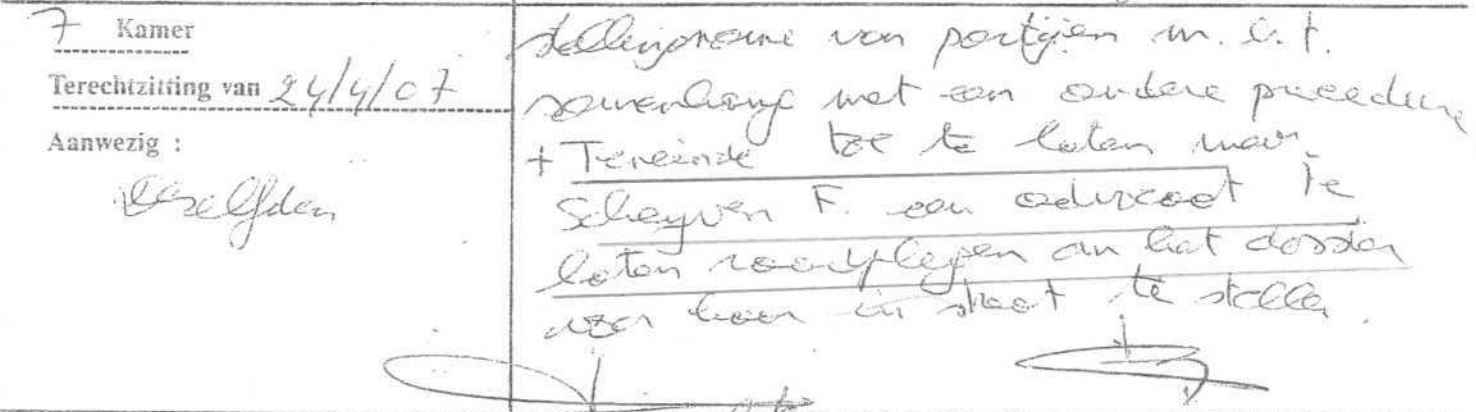 7 Kamer
Terechtzitting van 24/4/07
Aanwezig :
dezelfden
stellingname van partijen m.b.t.
samenhang met een andere procedure
+ Teneinde toe te laten mevr.
Scheyven F. een advocaat te
laten raadplegen om het dossier
voor haar in staat te stellen.